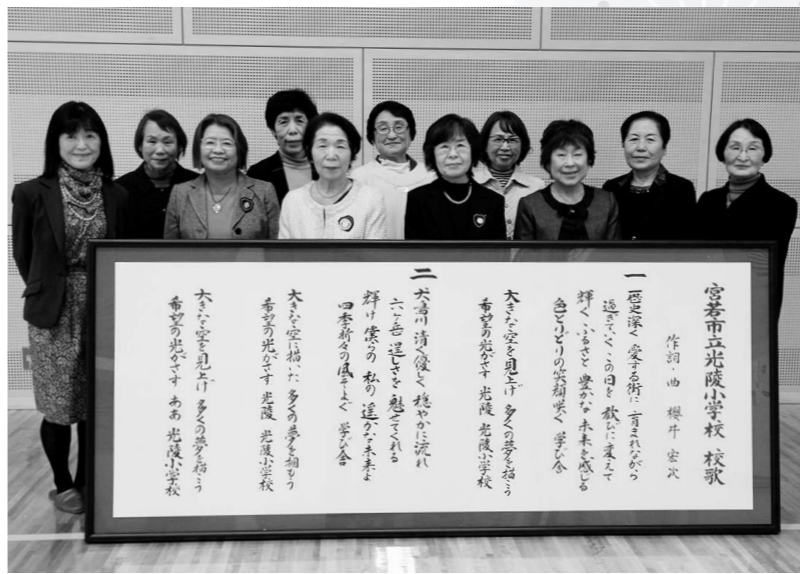 宮若市立光陵小学校 校歌
作詞・曲 櫻井 宏次
一 歴史深く 愛する街に 育まれながら
過ぎていく この日を 歓びに変えて
輝く ふるさと 豊かな 未来を感じる
色とりどりの笑顔咲く 学び舎
大きな空を見上げ 多くの夢を描こう
希望の光がさす 光陵 光陵小学校
二 犬鳴川 清く優しく 穏やかに流れ
六ケ岳 逞しさを 魅せてくれる
輝け 僕らの 私の 遥かな未来よ
四季折々の風そよぐ 学び舎
大きな空に描いた 多くの夢を掴もう
希望の光がさす 光陵 光陵小学校
大きな空を見上げ 多くの夢を描こう
希望の光がさす ああ 光陵小学校